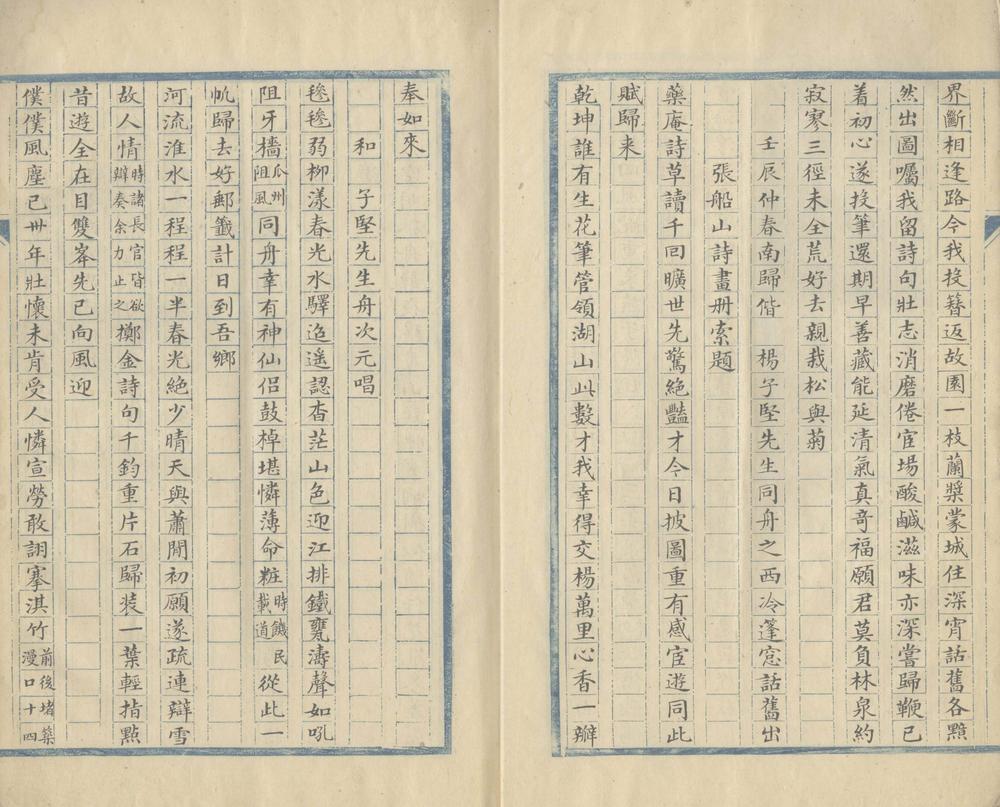 界斷相逢路今我投簪返故園一枝蘭槳蒙城住深宵話舊各黯
然出圖囑我留詩句壯志消磨倦宦場酸鹹滋味亦深嘗歸鞭已
着初心遂投筆還期早善藏能延清氣真奇福願君莫負林泉約
寂寥三徑未全荒好去親栽松與菊
壬辰仲春南歸偕　楊子堅先生同舟之西冷蓬窓話舊出
張船山詩畫册索題
藥庵詩草讀千回曠世先驚絕豔才今日披圖重有感宦遊同此
賦歸来
乾坤誰有生花筆管領湖山此數才我幸得交楊萬里心香一瓣
奉如來
和　子堅先生舟次元唱
毵毵弱柳漾春光水驛迢遥認杳茫山色迎江排鐵甕濤聲如吼
阻牙檣瓜州阻風同舟幸有神仙侣鼓棹堪憐薄命粧時饑民載道從此一
帆歸去好郵籤計日到吾鄉
河流淮水一程程一半春光絕少晴天與蕭閒初願遂疏連辯雪
故人情時諸長官皆欲辦奏余力止之擲金詩句千鈞重片石歸装一葉輕指點
昔遊全在目雙峯先已向風迎
僕僕風塵已卅年壯懷未肯受人憐宣勞敢詡搴淇竹前後堵築漫口十四